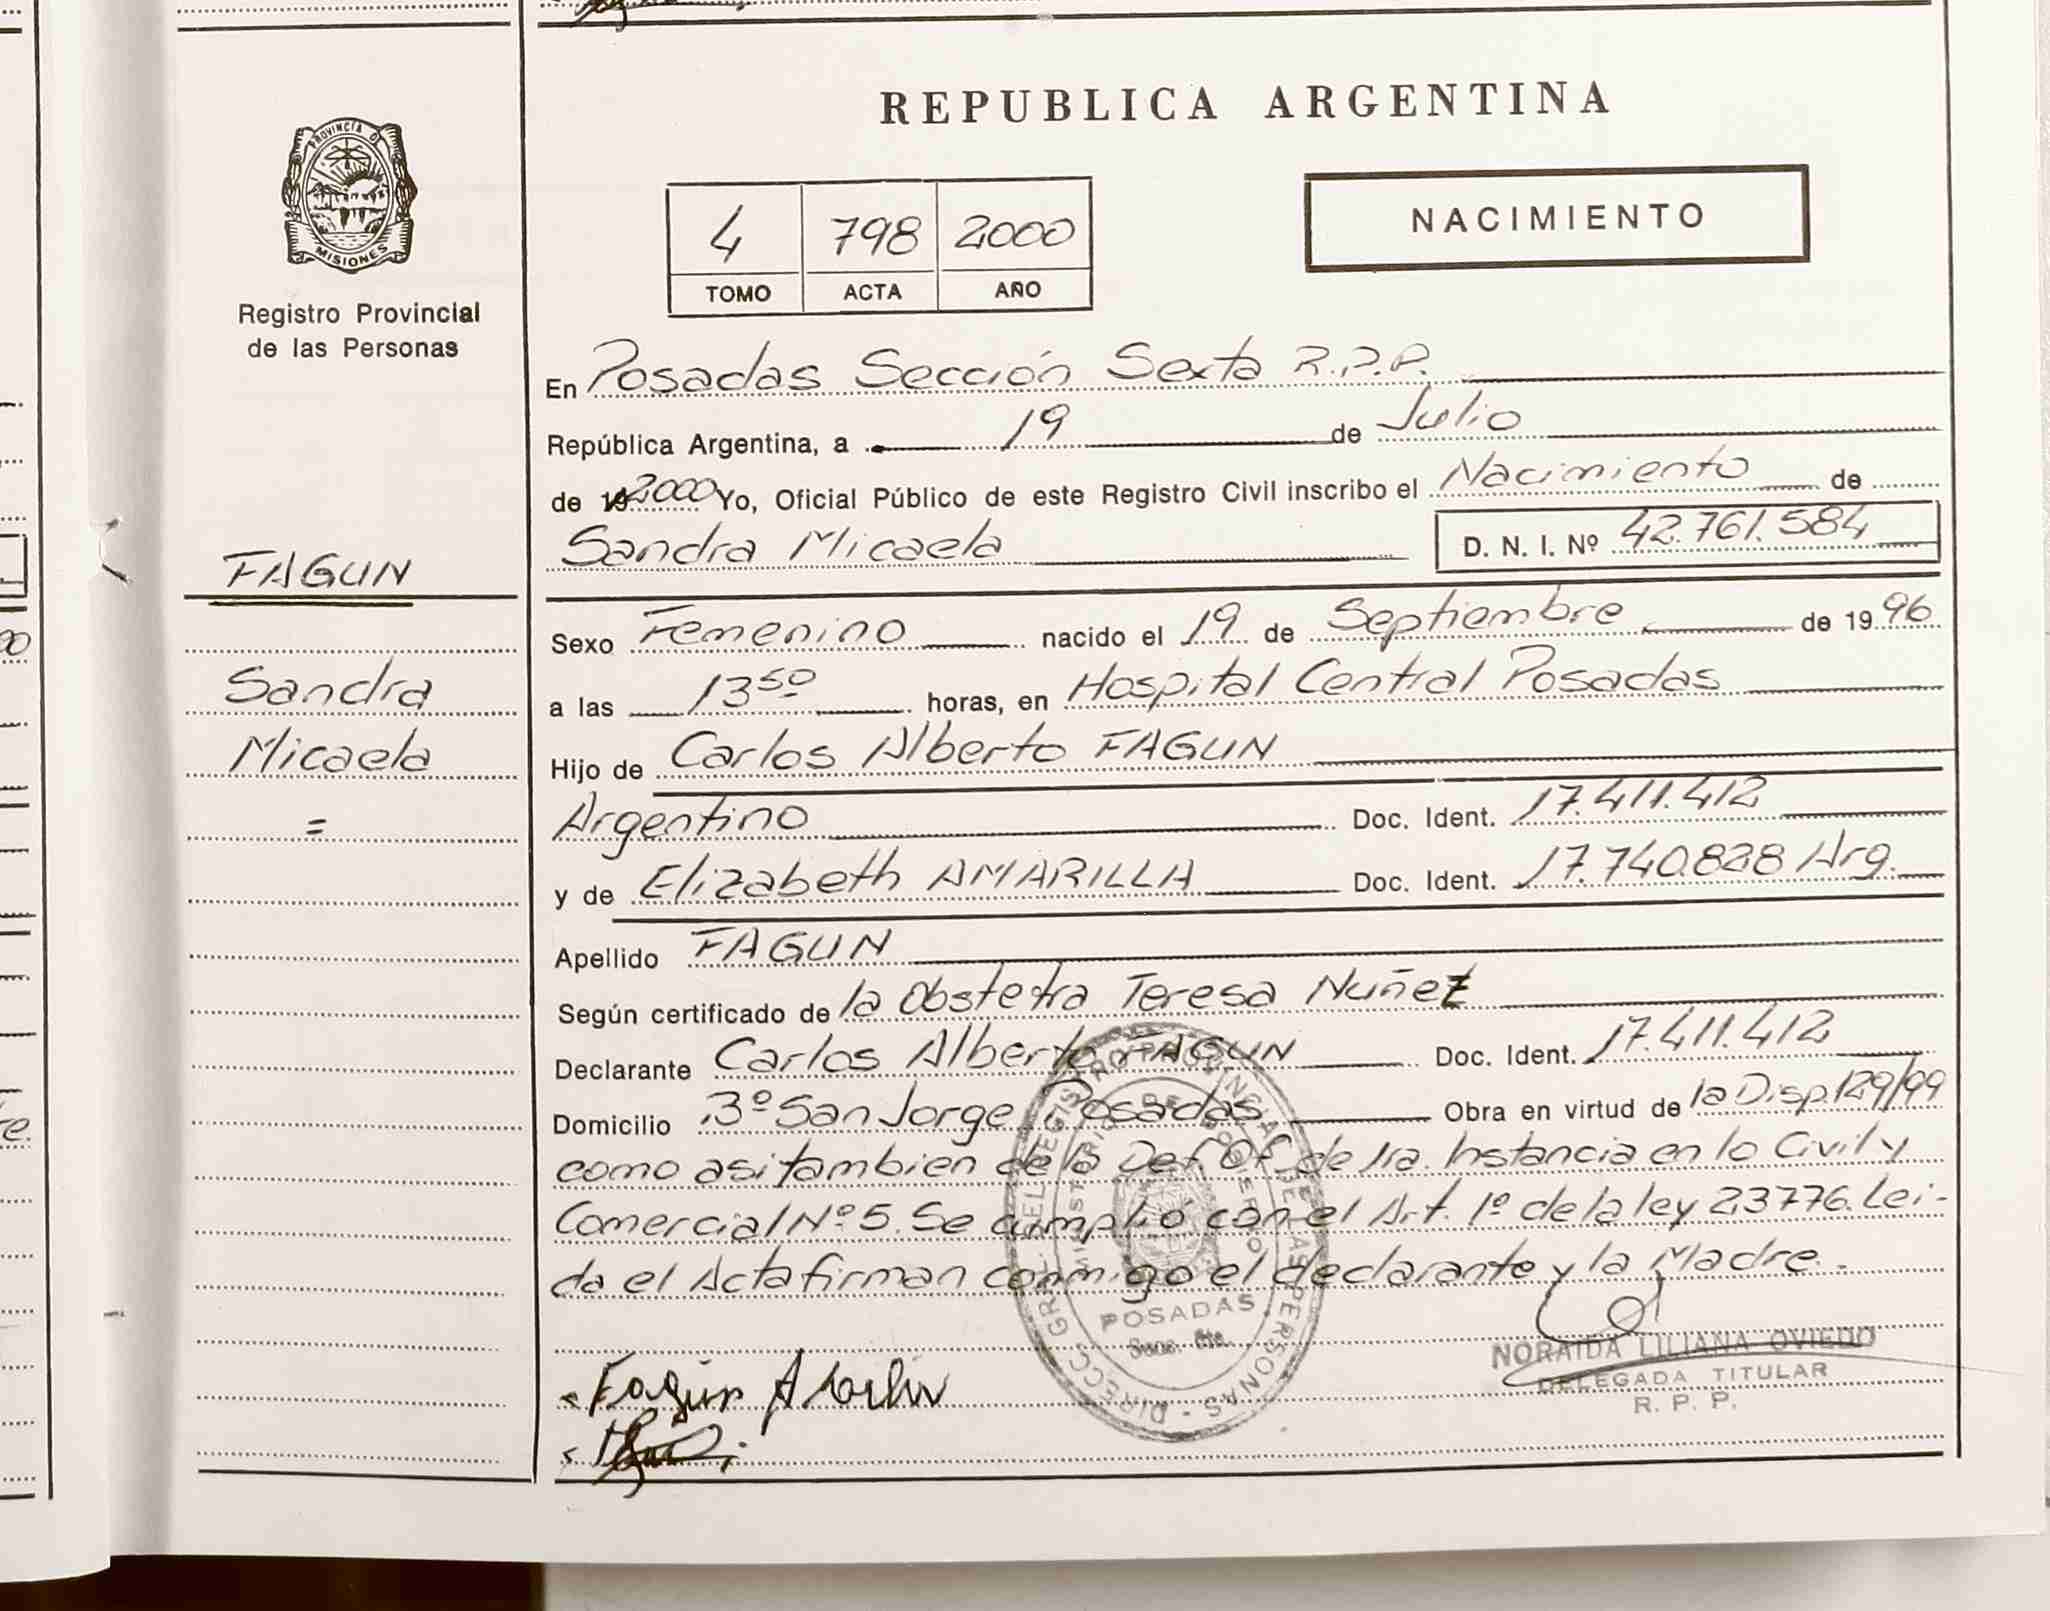 REPUBLICA ARGENTINA
PROVINCIA DE
MISIONES
Registro Provincial
de las Personas
4 798 2000
TOMO ACTA AÑO
NACIMIENTO
En Posadas Sección Sexta R.P.P.
República Argentina, a 19 de Julio
de 19 2000 Yo, Oficial Público de este Registro Civil inscribo el Nacimiento de
Sandra Micaela D. N. I. Nº 42.761.584
FAGUN
Sandra
Micaela
=
Sexo Femenino nacido el 19 de Septiembre de 1996
a las 13⁵⁰ horas, en Hospital Central Posadas
Hijo de Carlos Alberto FAGUN
Argentino Doc. Ident. 17.411.412
y de Elizabeth AMARILLA Doc. Ident. 17.740.828 Arg.
Apellido FAGUN
Según certificado de la Obstetra Teresa Nuñez
Declarante Carlos Alberto FAGUN Doc. Ident. 17.411.412
Domicilio 3º San Jorge Posadas Obra en virtud de la Disp. 129/99
como asi tambien de la Def. Of. de 1ra. Instancia en lo Civil y
Comercial Nº 5. Se cumplió con el Art. 1º de la ley 23776. Lei-
da el Acta firman conmigo el declarante y la Madre.-
DIRECC. GRAL. DEL REGISTRO PROVINCIAL DE LAS PERSONAS
MINISTERIO DE GOBIERNO
POSADAS
Secc. 6ta.
NORAIDA LILIANA OVIEDO
DELEGADA TITULAR
R. P. P.
Fagun